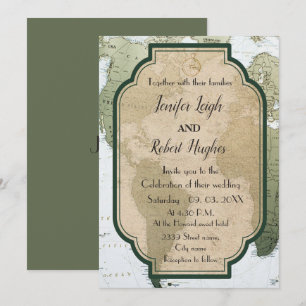 Together with their families
Jenifer Leigh
AND
Robert Hughes
Invite you to the
Celebration of their wedding
Saturday 09. 03. 20XX
At 4.30 P.M.
At the Howard sweet hotel
2339 Street name
City name
Reception to follow